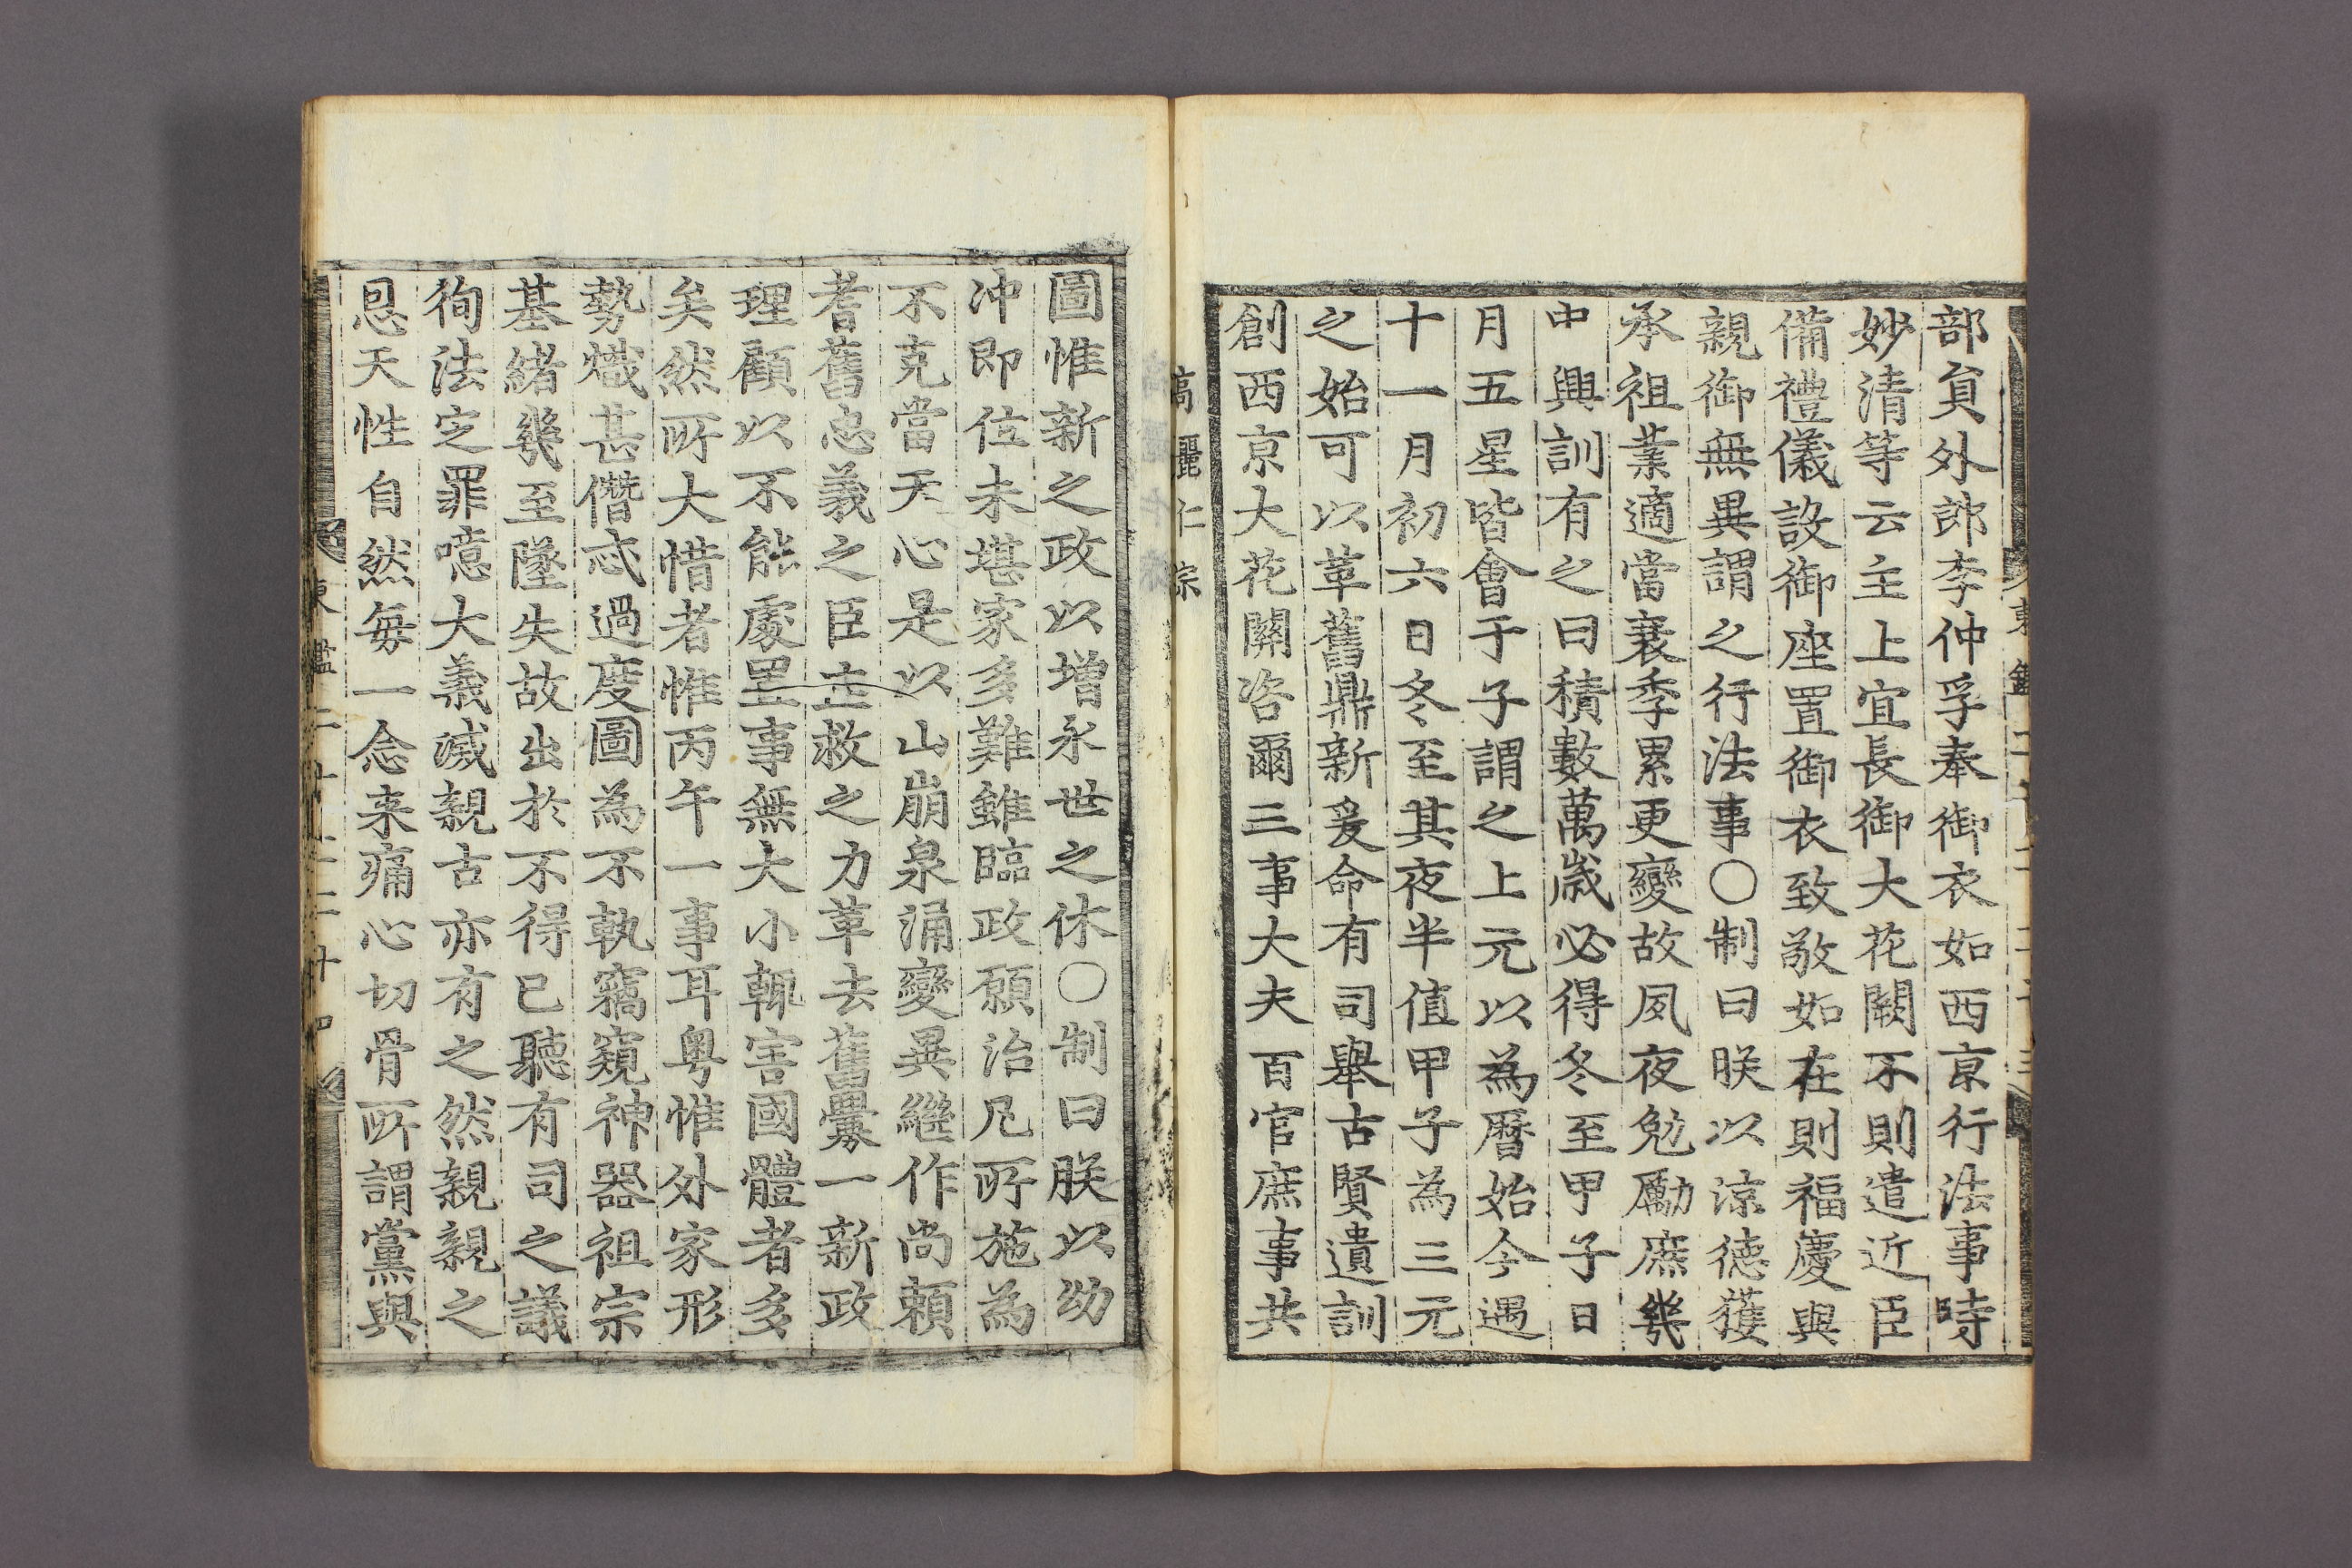 部負外郎李仲孚奉御衣如西京行法事時
妙清等云主上宜長御大花闕不則遣近臣
備禮儀設御座置御衣致敬如在則福慶與
親御無異謂之行法事○制曰朕以涼德獲
承祖業適當衰季累更變故夙夜勉勵庶幾
中興訓有之曰積數萬歲必得冬至甲子日
月五星皆會于子謂之上元以為曆始今遇
十一月初六日冬至其夜半値甲子為三元
之始可以革舊鼎新爰命有司舉古賢遺訓
創西京大花闕咨爾三事大夫百官庶事共
高麗仁宗
圖惟新之政以增永世之休○制曰朕以幼
冲即位未堪家多難雖臨政願治凡所施為
不克當天心是以山崩泉涌變異繼作尚賴
耆舊忠義之臣主救之力革去舊釁一新政
理顧以不能處置事無大小輒害國體者多
矣然所大惜者惟丙午一事耳粤惟外家形
勢熾甚僭忒過度圖為不軌竊窺神器祖宗
基緒幾至墜失故出於不得已聽有司之議
徇法定罪噫大義滅親古亦有之然親親之
恩天性自然每一念来痛心切骨所謂黨與
東鑑二十二 二十四